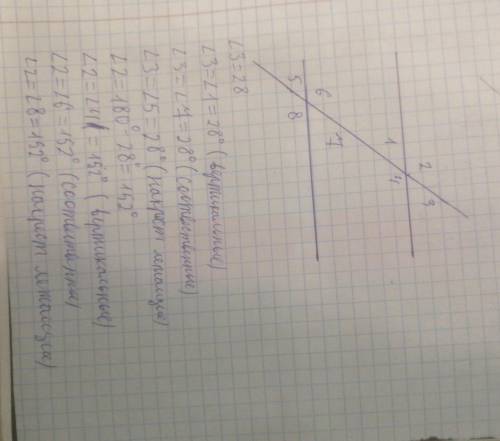 5 6
8 7
1 2
4 3
∠3=28
∠3=∠1=28° (вертикальные)
∠3=∠7=28° (соответственные)
∠3=∠5=28° (накрест лежащие)
∠2=180°-28°=152°
∠2=∠4=152° (вертикальные)
∠2=∠6=152° (соответственные)
∠2=∠8=152° (накрест лежащие)